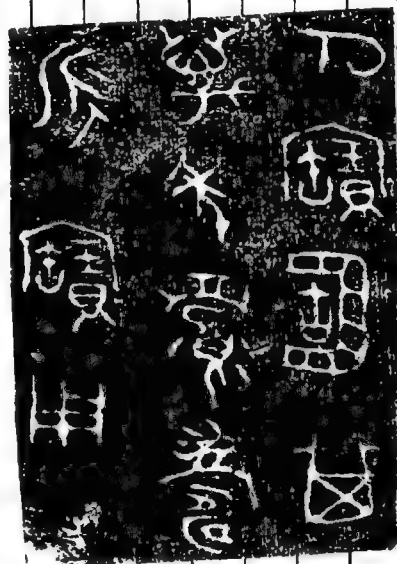 乍寶𠤳其
萬年眉壽
永寶用